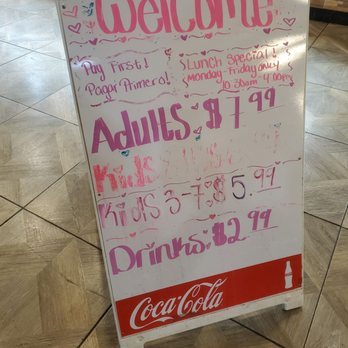 Welcome
Pay First!
Pagar Primero!
Lunch Special!
Monday-Friday only
10:30am-4:00pm
Adults: $7.99
Kids
Kids 3-7: $5.99
Drinks: $2.99
Coca-Cola